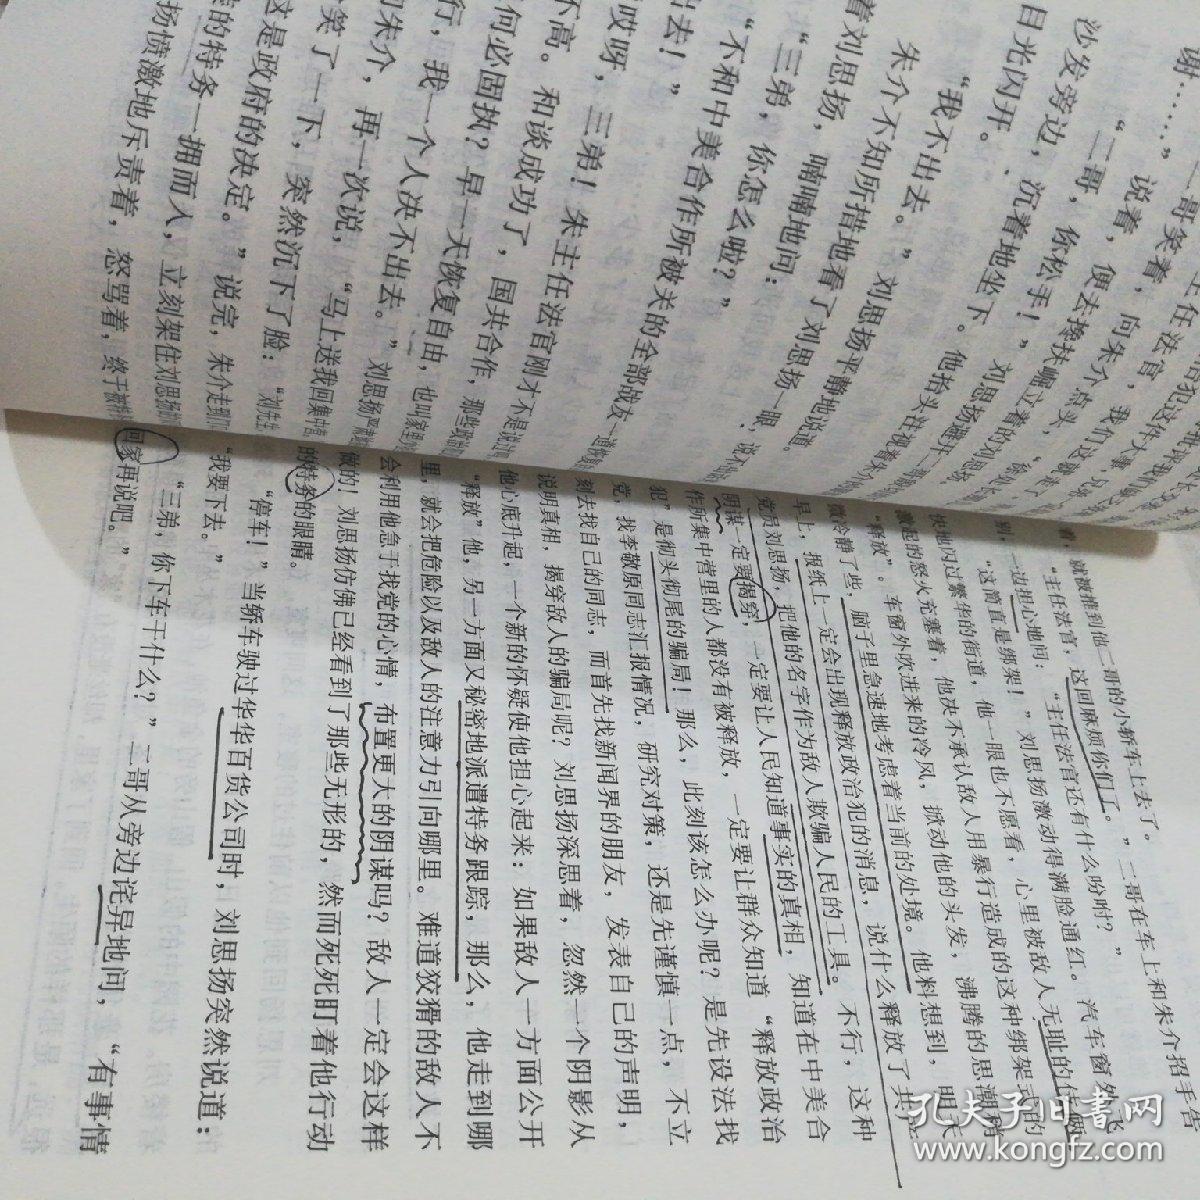 谢……”二哥笑着，向朱介点头，
“二哥，你松手！”刘思扬避开二哥
沙发旁边，沉着地坐下。他抬头狂视着朱介
目光闪开。
“我不出去。”刘思扬平静地说道。
朱介不知所措地看了刘思扬一眼，说不出
着刘思扬，喃喃地问：
“三弟，你怎么啦？”
“不和中美合作所被关的全部战友一道
出去！”
哎呀，三弟！朱主任法官刚才不是说过
不高。和谈成功了，国共合作，那些政治犯
何必固执？早一天恢复自由，也叫家里
行，我一个人决不出去。”刘思扬严肃
朱介，再一次说，“马上送我回集中营
笑了一下，突然沉下了脸：“刘先生
这是政府的决定。”说完，朱介走到门
的特务一拥而入，立刻架住刘思扬
扬愤激地斥责着，怒骂着，终于被特
着，就被推到他二哥的小轿车上去了。
“主任法官，这回麻烦你们了。”二哥在车上和朱介招手告
别，一边担心地问：“主任法官还有什么吩咐？”
“这简直是绑架！”刘思扬激动得满脸通红。汽车窗外飞
快地闪过繁华的街道，他一眼也不愿看，心里被敌人无耻的伎俩
激起的怒火充塞着，他决不承认敌人用暴行造成的这种绑架式的
“释放”。车窗外吹进来的冷风，掀动他的头发，沸腾的思潮稍
微冷静了些，脑子里急速地考虑着当前的处境。他料想到，明天
早上，报纸上一定会出现释放政治犯的消息，说什么释放了共产
党员刘思扬，把他的名字作为敌人欺骗人民的工具。不行，这种
阴谋一定要揭穿，一定要让人民知道事实的真相，知道在中美合
作所集中营里的人都没有被释放，一定要让群众知道“释放政治
犯”是彻头彻尾的骗局！那么，此刻该怎么办呢？是先设法找
党，找李敬原同志汇报情况，研究对策，还是先谨慎一点，不立
刻去找自己的同志，而首先找新闻界的朋友，发表自己的声明，
说明真相，揭穿敌人的骗局呢？刘思扬深思着，忽然一个阴影从
他心底升起，一个新的怀疑使他担心起来：如果敌人一方面公开
“释放”他，另一方面又秘密地派遣特务跟踪，那么，他走到哪
里，就会把危险以及敌人的注意力引向哪里。难道狡猾的敌人不
会利用他急于找党的心情，布置更大的阴谋吗？敌人一定会这样
做的！刘思扬仿佛已经看到了那些无形的，然而死死盯着他行动
的特务的眼睛。
“停车！”当轿车驶过华华百货公司时，刘思扬突然说道：
“我要下去。”
“三弟，你下车干什么？”二哥从旁边诧异地问，“有事情
回家再说吧。”
孔夫子旧书网
www.kongfz.com